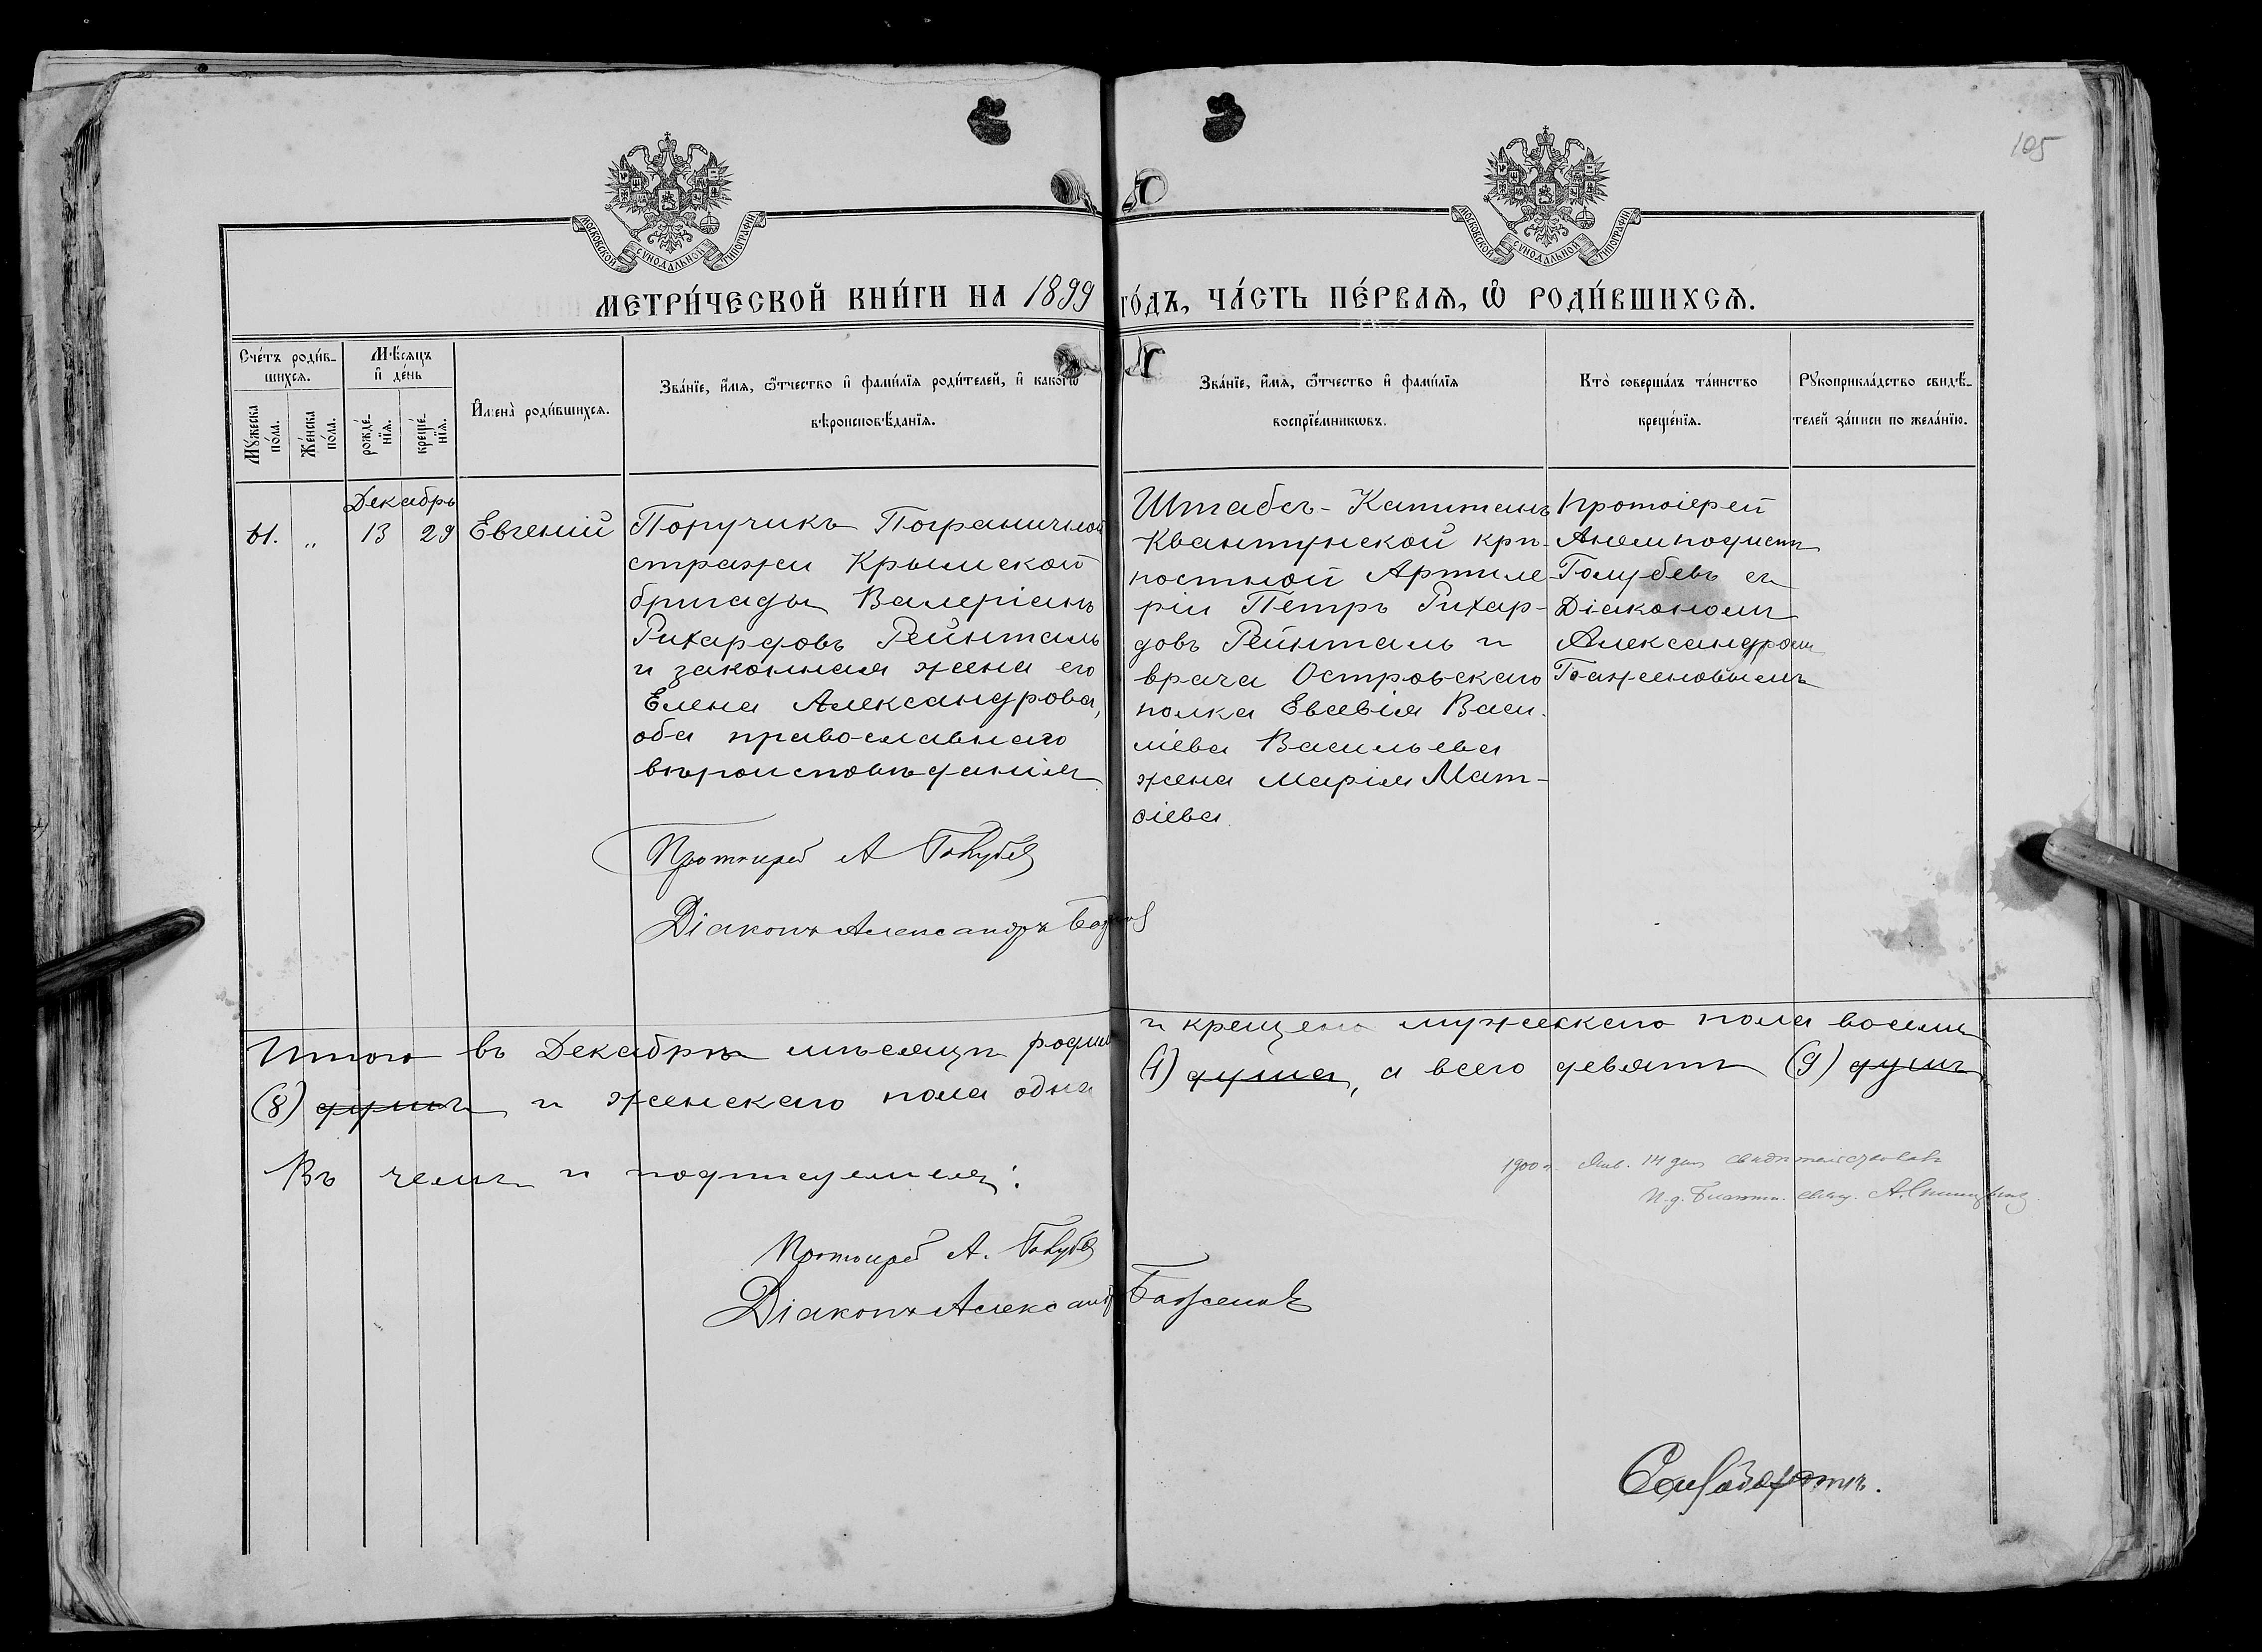 105
МОСКОВСКОЙ СѴНОДАЛЬНОЙ ТИПОГРАФІИ
МОСКОВСКОЙ СѴНОДАЛЬНОЙ ТИПОГРАФІИ
МЕТРИ́ЧЕСКОЙ КНИ́ГИ НА 1899 ГО́ДЪ, ЧА́СТЬ ПЕ́РВАѦ, Ѡ҆ РОДИ́ВШИХСѦ.
Сче́тъ роди́в-
шихся.
Мꙋ́жеска по́ла.
Же́нска по́ла.
Мѣ́сяцъ
и҆ де́нь
рожде́-нїѧ.
креще́-нїѧ.
И҆мена̀ роди́вшихся.
Зва́нїе, и҆́мѧ, ѻ҆́тчество и҆ фамі́лїѧ роди́телей, и҆ како́гѡ
вѣроисповѣ́данїѧ.
Зва́нїе, и҆́мѧ, ѻ҆́тчество и҆ фамі́лїѧ
воспрїе́мникѡвъ.
Кто̀ соверша́лъ та́инство
креще́нїѧ.
Рꙋкоприкла́дство свидѣ́-
телей за́писи по жела́нїю.
Декабрь
41. „ 13 29 Евгеній
Поручикъ Пограничной
стражи Крымской
бригады Валеріанъ
Рихардовъ Рейнталь
и законная жена его
Елена Александрова,
оба православнаго
вѣроисповѣданія
Штабсъ-Капитанъ
Квантунской крѣ-
постной Артиле-
ріи Петръ Рихар-
довъ Рейнталь и
врача Островскаго
полка Евсевія Васи-
ліева Васильева
жена Марія Мат-
ѳіева
Протоіерей
Анемподистъ
Голубевъ съ
Діакономъ
Александромъ
Баженовымъ
Протоіерей А Голубевъ
Діаконъ Александръ Баженовъ
Итого въ Декабрѣ мѣсяцѣ родил и крещено мужескаго пола восемь
(8) душъ и женскаго пола одна (1) душа, а всего девять (9) душъ
Въ чемъ и подписуемся:
1900 г. Янв. 14 дня свидѣтельствовалъ
И. д. Благоч. свящ. А.
Протоіерей А. Голубевъ
Діаконъ Александръ Баженовъ